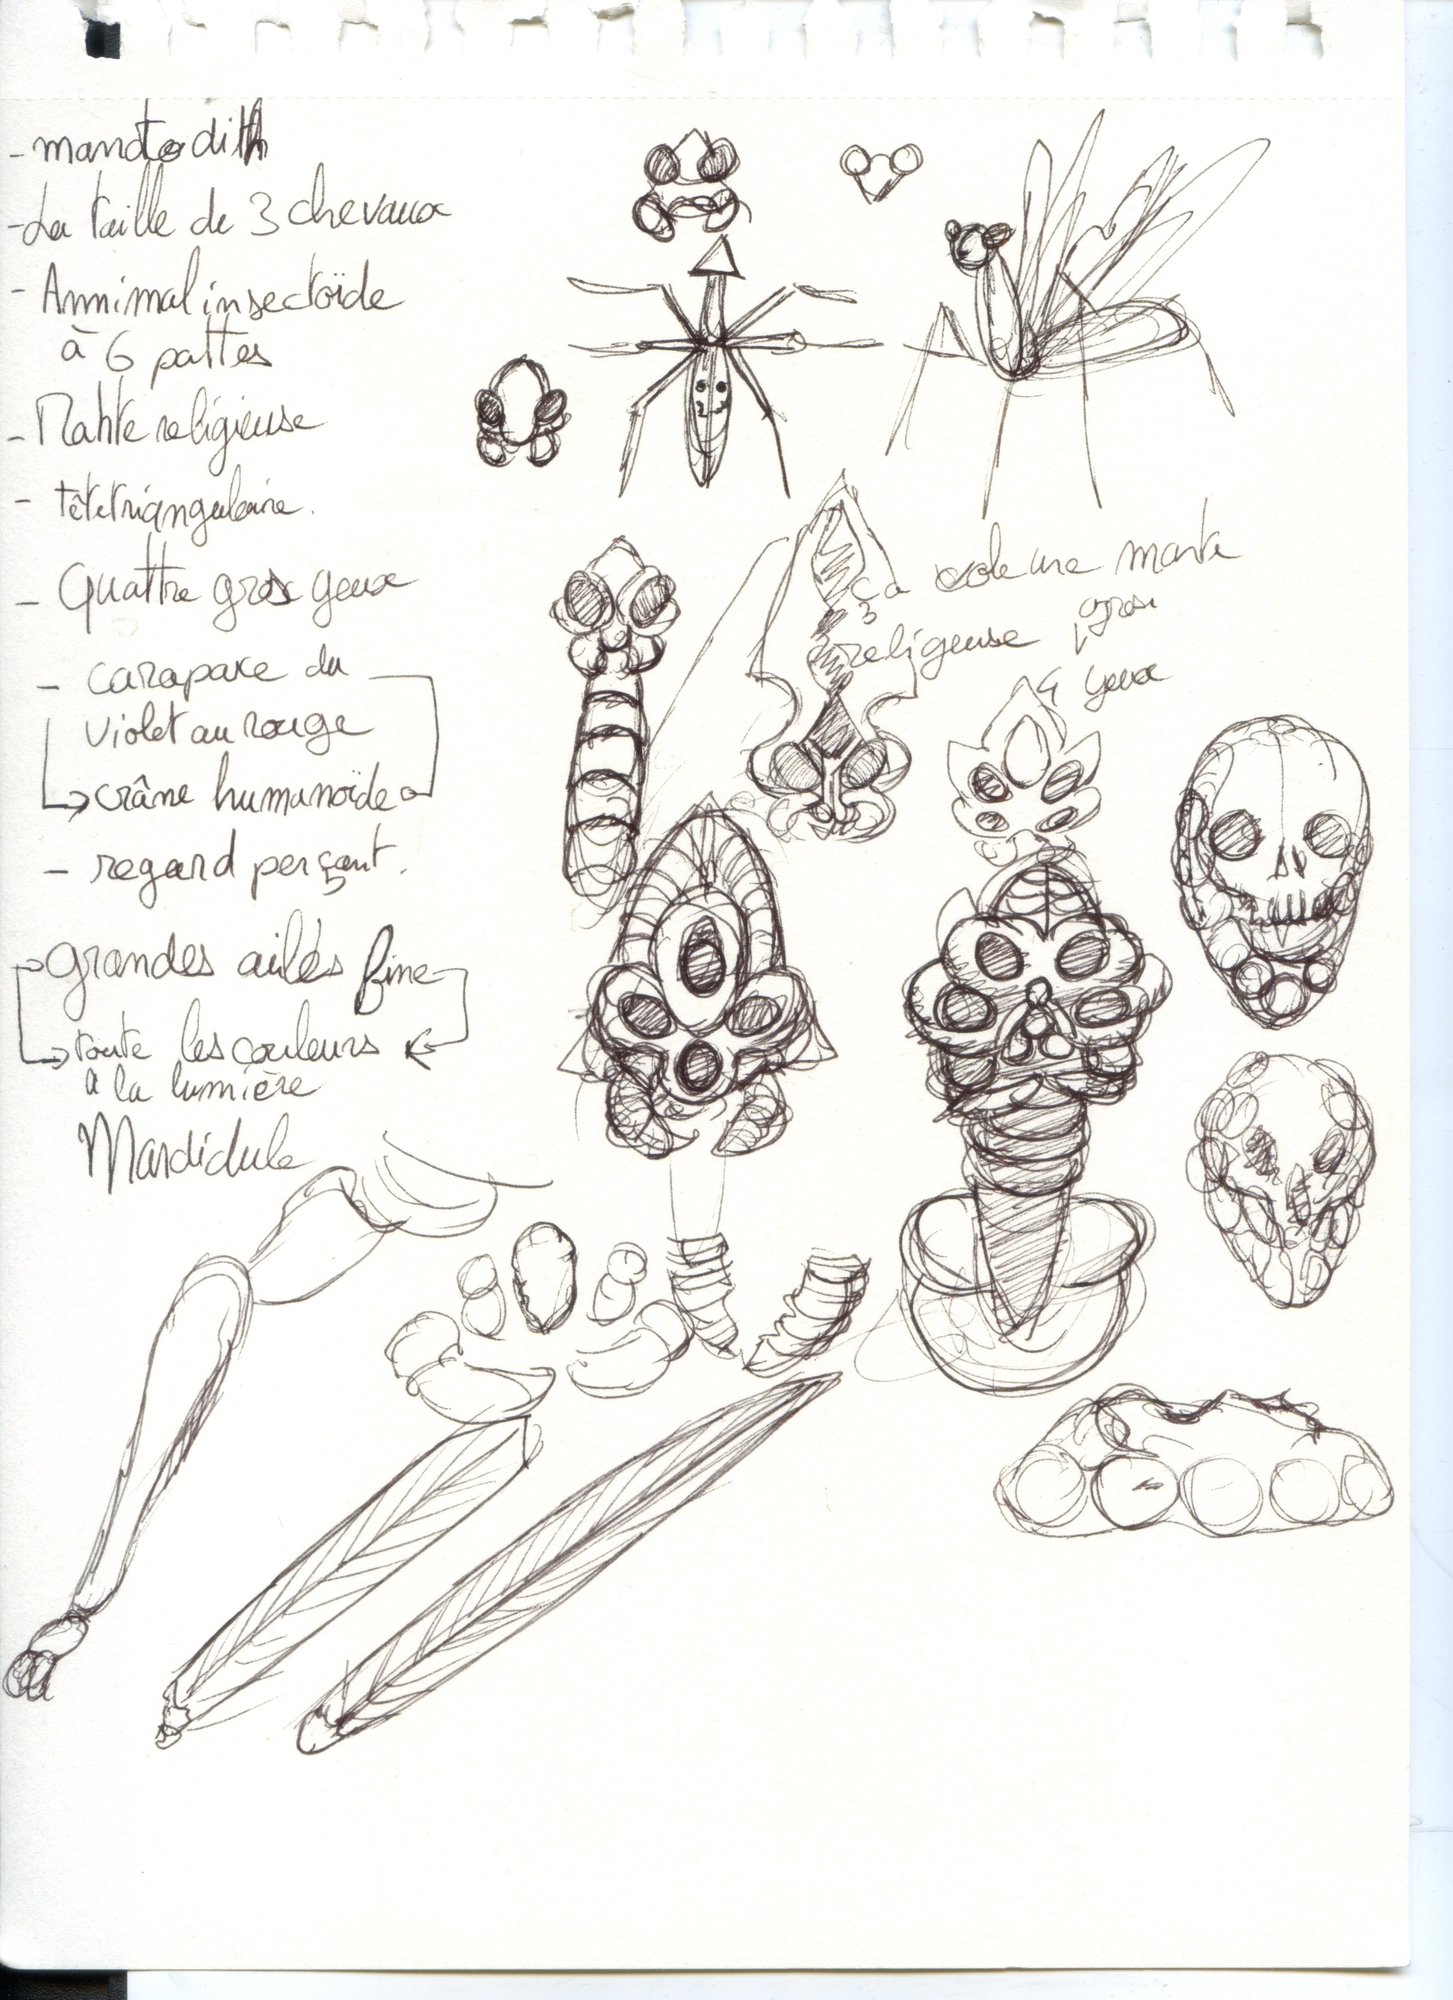 - mantodith
- La taille de 3 chevaux
- Annimal insectoïde
à 6 pattes
- Mante religieuse
- têtetriangulaire.
- Quattre gros yeux
- carapace du
violet au rouge
→ crâne humanoïde
- regard perçant.
→ grandes ailes fine
→ toute les couleurs ←
a la lumière
Mandidule
ça vole une mante
religeuse
gros
4 yeux